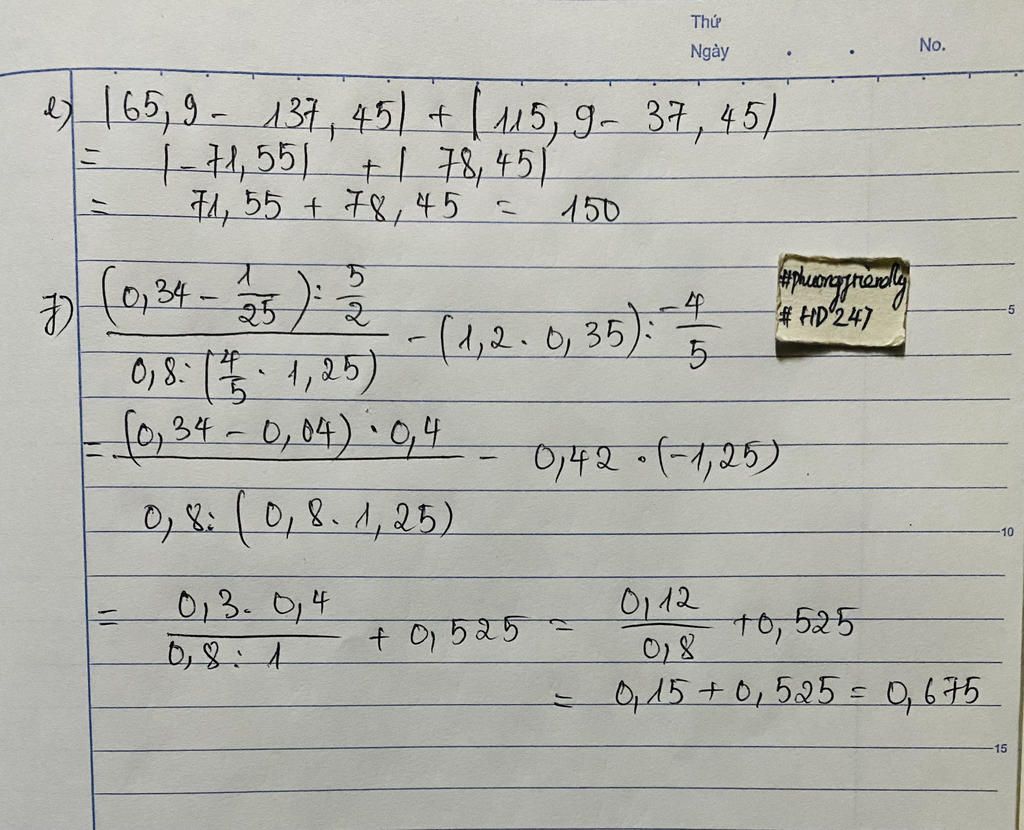 Thứ
Ngày . . No.
e) |65,9 - 137,45| + |115,9 - 37,45|
= |-71,55| + |78,45|
= 71,55 + 78,45 = 150
f) \frac{(0,34 - \frac{1}{25}) : \frac{5}{2}}{0,8 : (\frac{4}{5} . 1,25)} - (1,2 . 0,35) : \frac{-4}{5}
#phuongfriendly
# HD 247
5
= \frac{(0,34 - 0,04) . 0,4}{0,8 : (0,8 . 1,25)} - 0,42 . (-1,25)
10
= \frac{0,3 . 0,4}{0,8 : 1} + 0,525 = \frac{0,12}{0,8} + 0,525
= 0,15 + 0,525 = 0,675
15